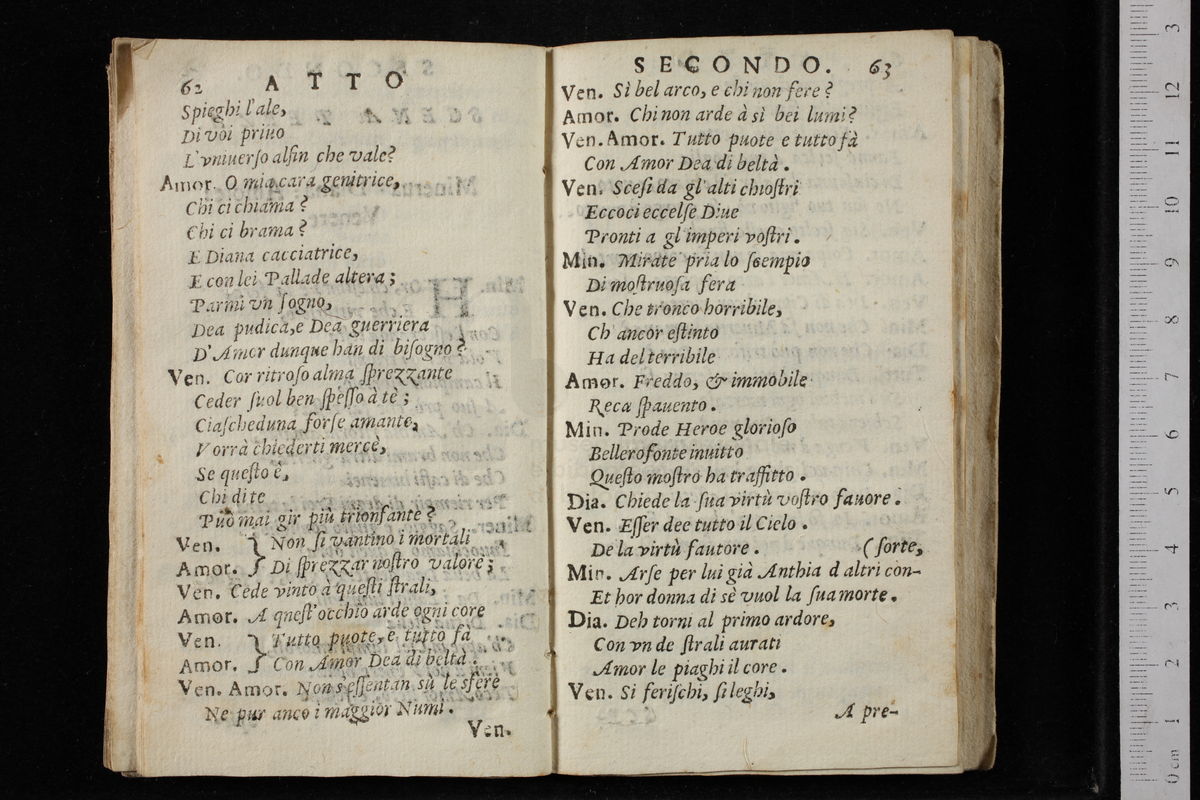 62 ATTO
Spieghi l'ale,
Di voi priuo
L'vniuerſo alfin che vale?
Amor. O mia cara genitrice,
Chi ci chiama?
Chi ci brama?
E Diana cacciatrice,
E con lei Pallade altera;
Parmi vn ſogno,
Dea pudica, e Dea guerriera
D'Amor dunque han di biſogno?
Ven. Cor ritroſo alma ſprezzante
Ceder ſuol ben ſpeſſo à te;
Ciaſcheduna forſe amante,
Vorrà chiederti mercè,
Se queſto è,
Chi di te
Può mai gir più trionfante?
Ven. } Non ſi vantino i mortali
Amor. } Di ſprezzar noſtro valore;
Ven. Cede vinto à queſti ſtrali,
Amor. A qneſt'occhio arde ogni core
Ven. } Tutto puote, e tutto fà
Amor. } Con Amor Dea di beltà.
Ven. Amor. Non s'eſſentan sù le sfere
Ne pur anco i maggior Numi.
Ven.
SECONDO. 63
Ven. Sì bel arco, e chi non fere?
Amor. Chi non arde à sì bei lumi?
Ven. Amor. Tutto puote e tutto fà
Con Amor Dea di beltà.
Ven. Sceſi da gl'alti chioſtri
Eccoci eccelſe Diue
Pronti a gl'imperi voſtri.
Min. Mirate pria lo ſcempio
Di moſtruoſa fera
Ven. Che tronco horribile,
Ch'ancor eſtinto
Ha del terribile
Amor. Freddo, & immobile
Reca ſpauento.
Min. Prode Heroe glorioſo
Bellerofonte inuitto
Queſto moſtro ha traffitto.
Dia. Chiede la ſua virtù voſtro fauore.
Ven. Eſſer dee tutto il Cielo.
De la virtù fautore. (ſorte,
Min. Arſe per lui già Anthia d'altri con-
Et hor donna di sè vuol la ſua morte.
Dia. Deh torni al primo ardore,
Con vn de ſtrali aurati
Amor le piaghi il core.
Ven. Si feriſchi, ſi leghi,
A pre-
3
12
11
10
9
8
7
6
5
4
3
2
1
0 cm